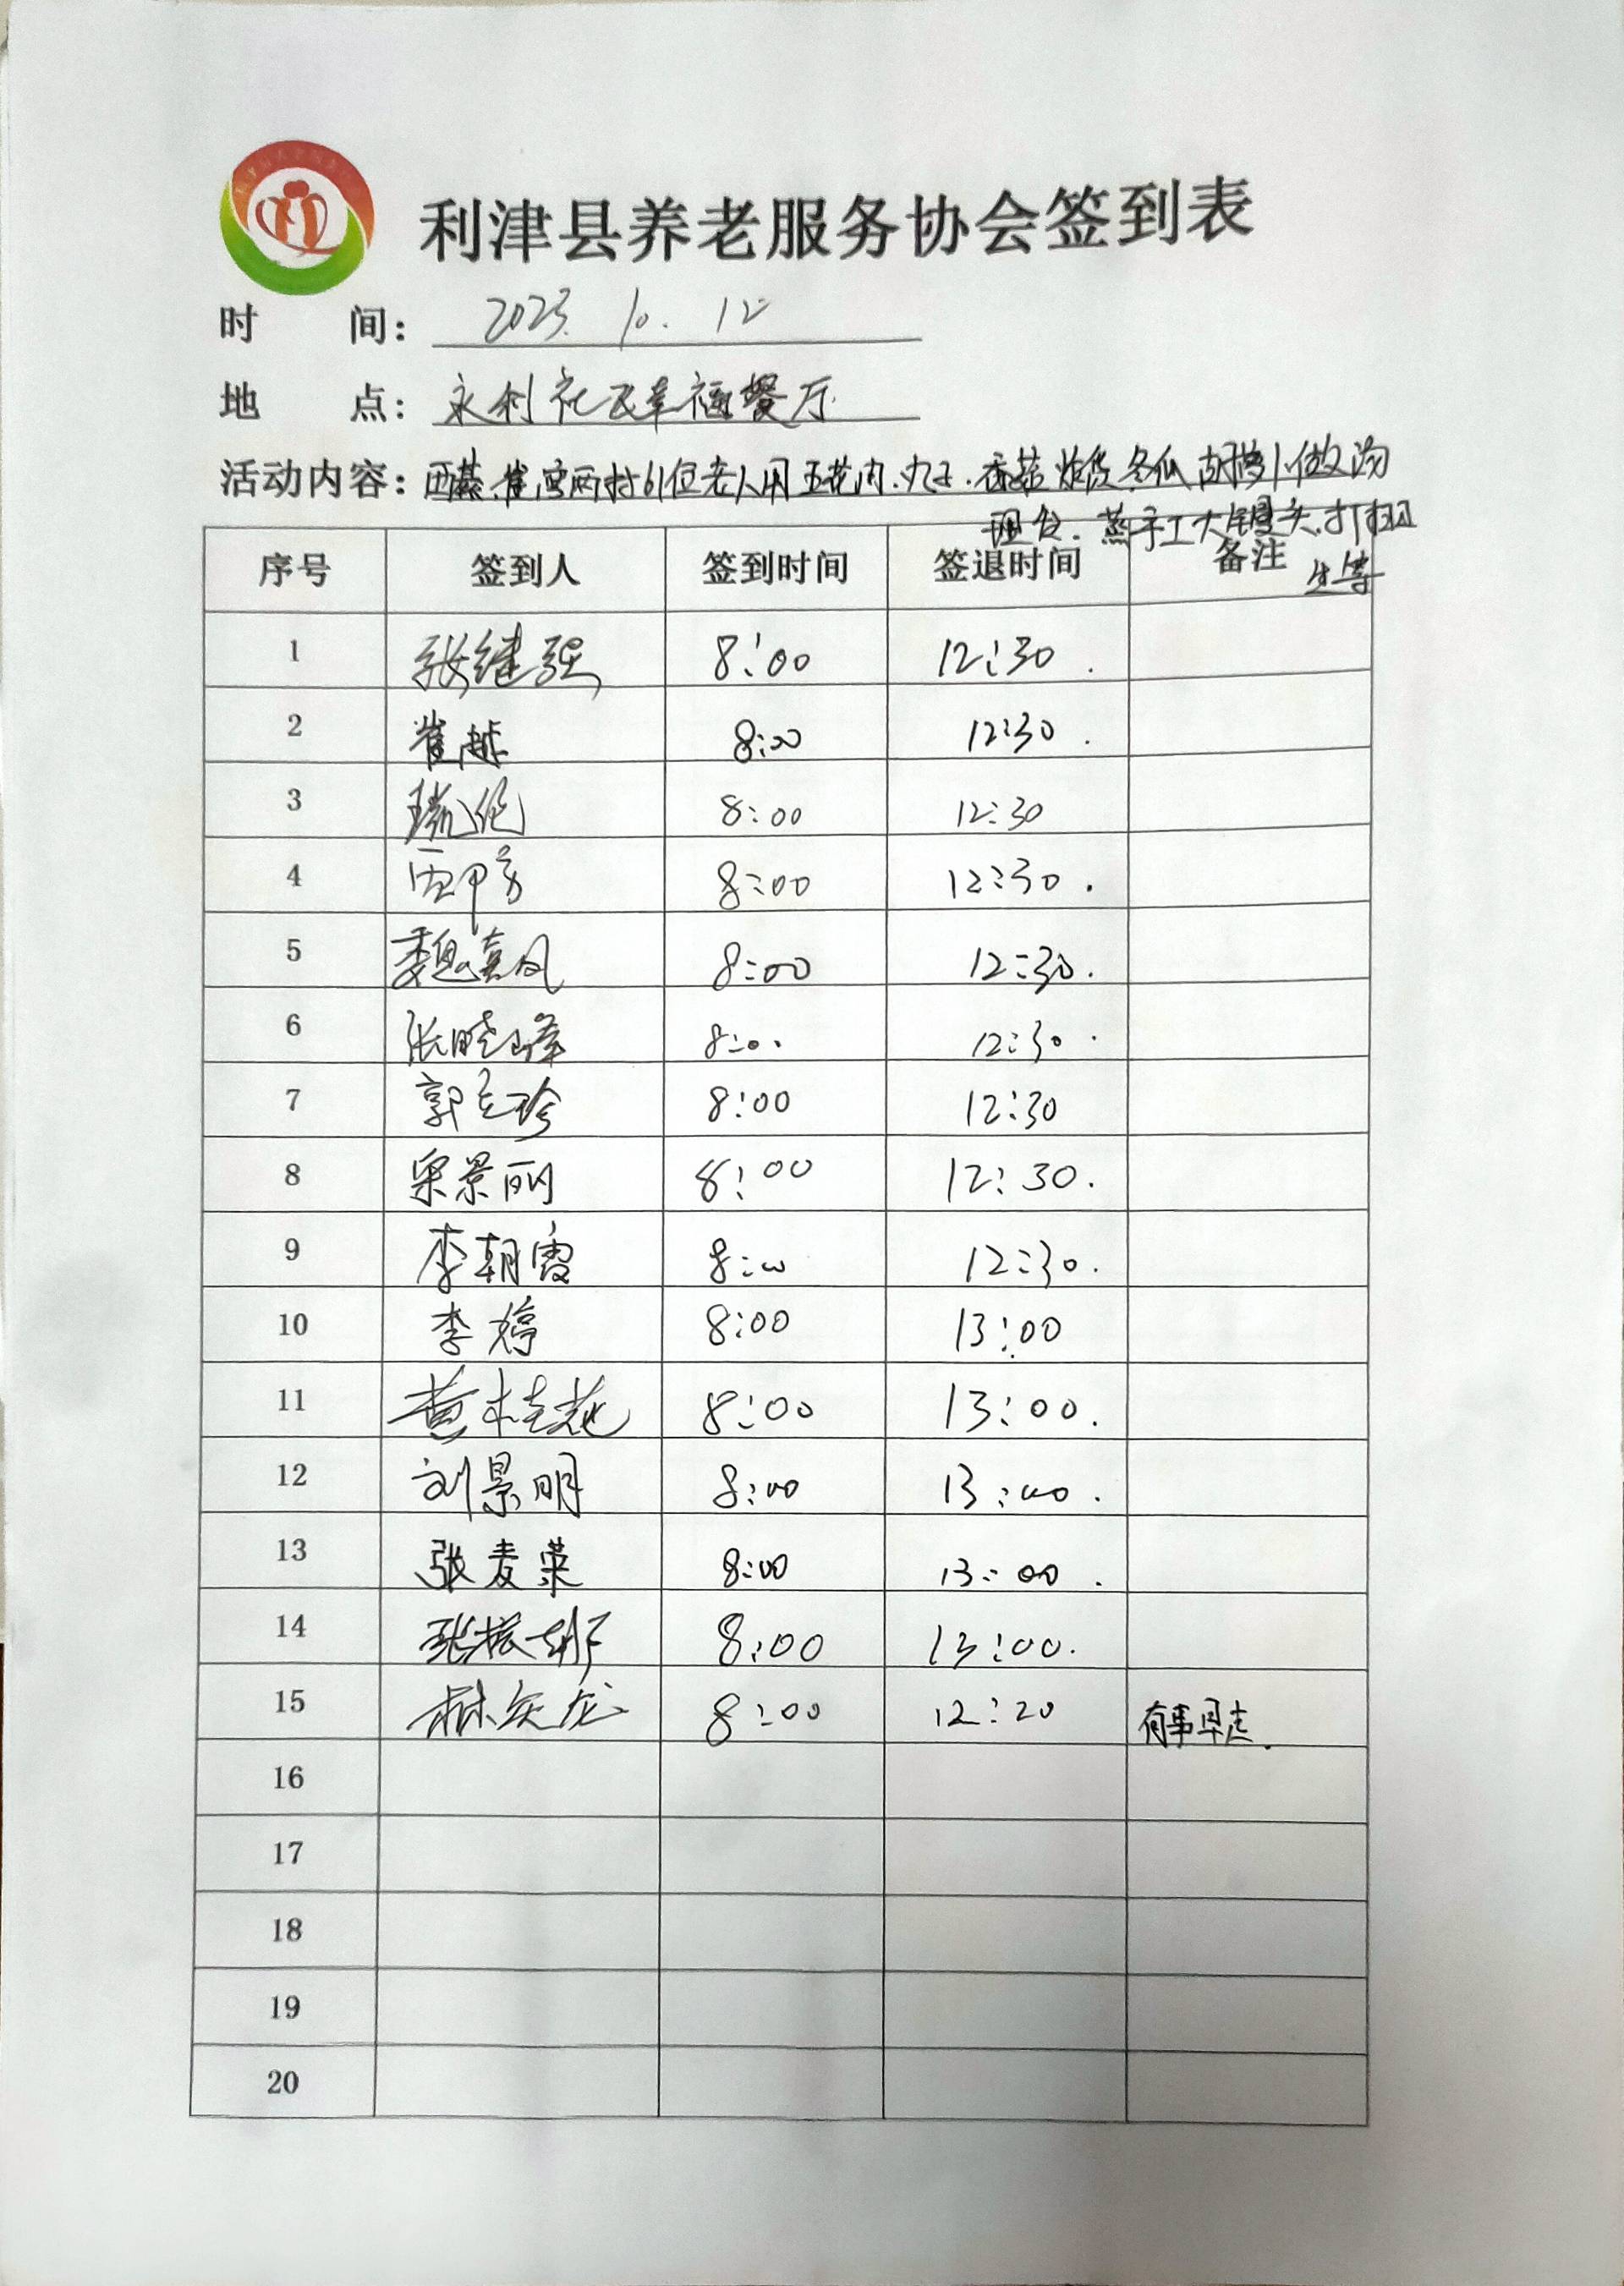 利津县养老服务协会签到表
时 间: 2023. 10. 12
地 点: 永利社区幸福餐厅
活动内容: 两村61位老人用五花肉.丸子.香菇 炸货 冬瓜 胡萝卜做汤
现发. 蒸手工大馒头.打扫卫
生等
序号 签到人 签到时间 签退时间 备注
1 张继强 8:00 12:30.
2 崔 8:00 12:30.
3 8:00 12:30
4 8:00 12:30.
5 魏真凤 8:00 12:30.
6 张晓峰 8:00 12:30.
7 郭立珍 8:00 12:30
8 梁景丽 8:00 12:30.
9 李朝霞 8:00 12:30.
10 李婷 8:00 13:00
11 黄桂花 8:00 13:00.
12 刘景明 8:00 13:00.
13 张麦荣 8:00 13:00.
14 张振娜 8:00 13:00.
15 林庆龙 8:00 12:20 有事早走.
16
17
18
19
20